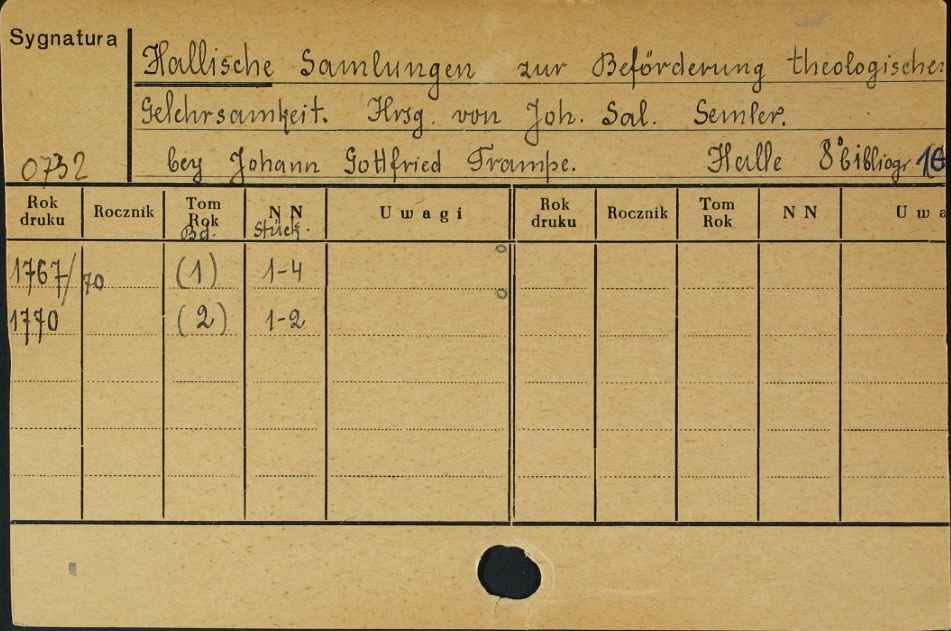 Sygnatura
Hallische Samlungen zur Beförderung theologischer
Gelehrsamkeit. Hrsg. von Joh. Sal. Semler.
0732 bey Johann Gottfried Trampe. Halle 8° bibliogr
Rok druku Rocznik Tom Rok Bd. N N Stück. Uwagi Rok druku Rocznik Tom Rok N N Uwa
1767/70 (1) 1-4
1770 (2) 1-2